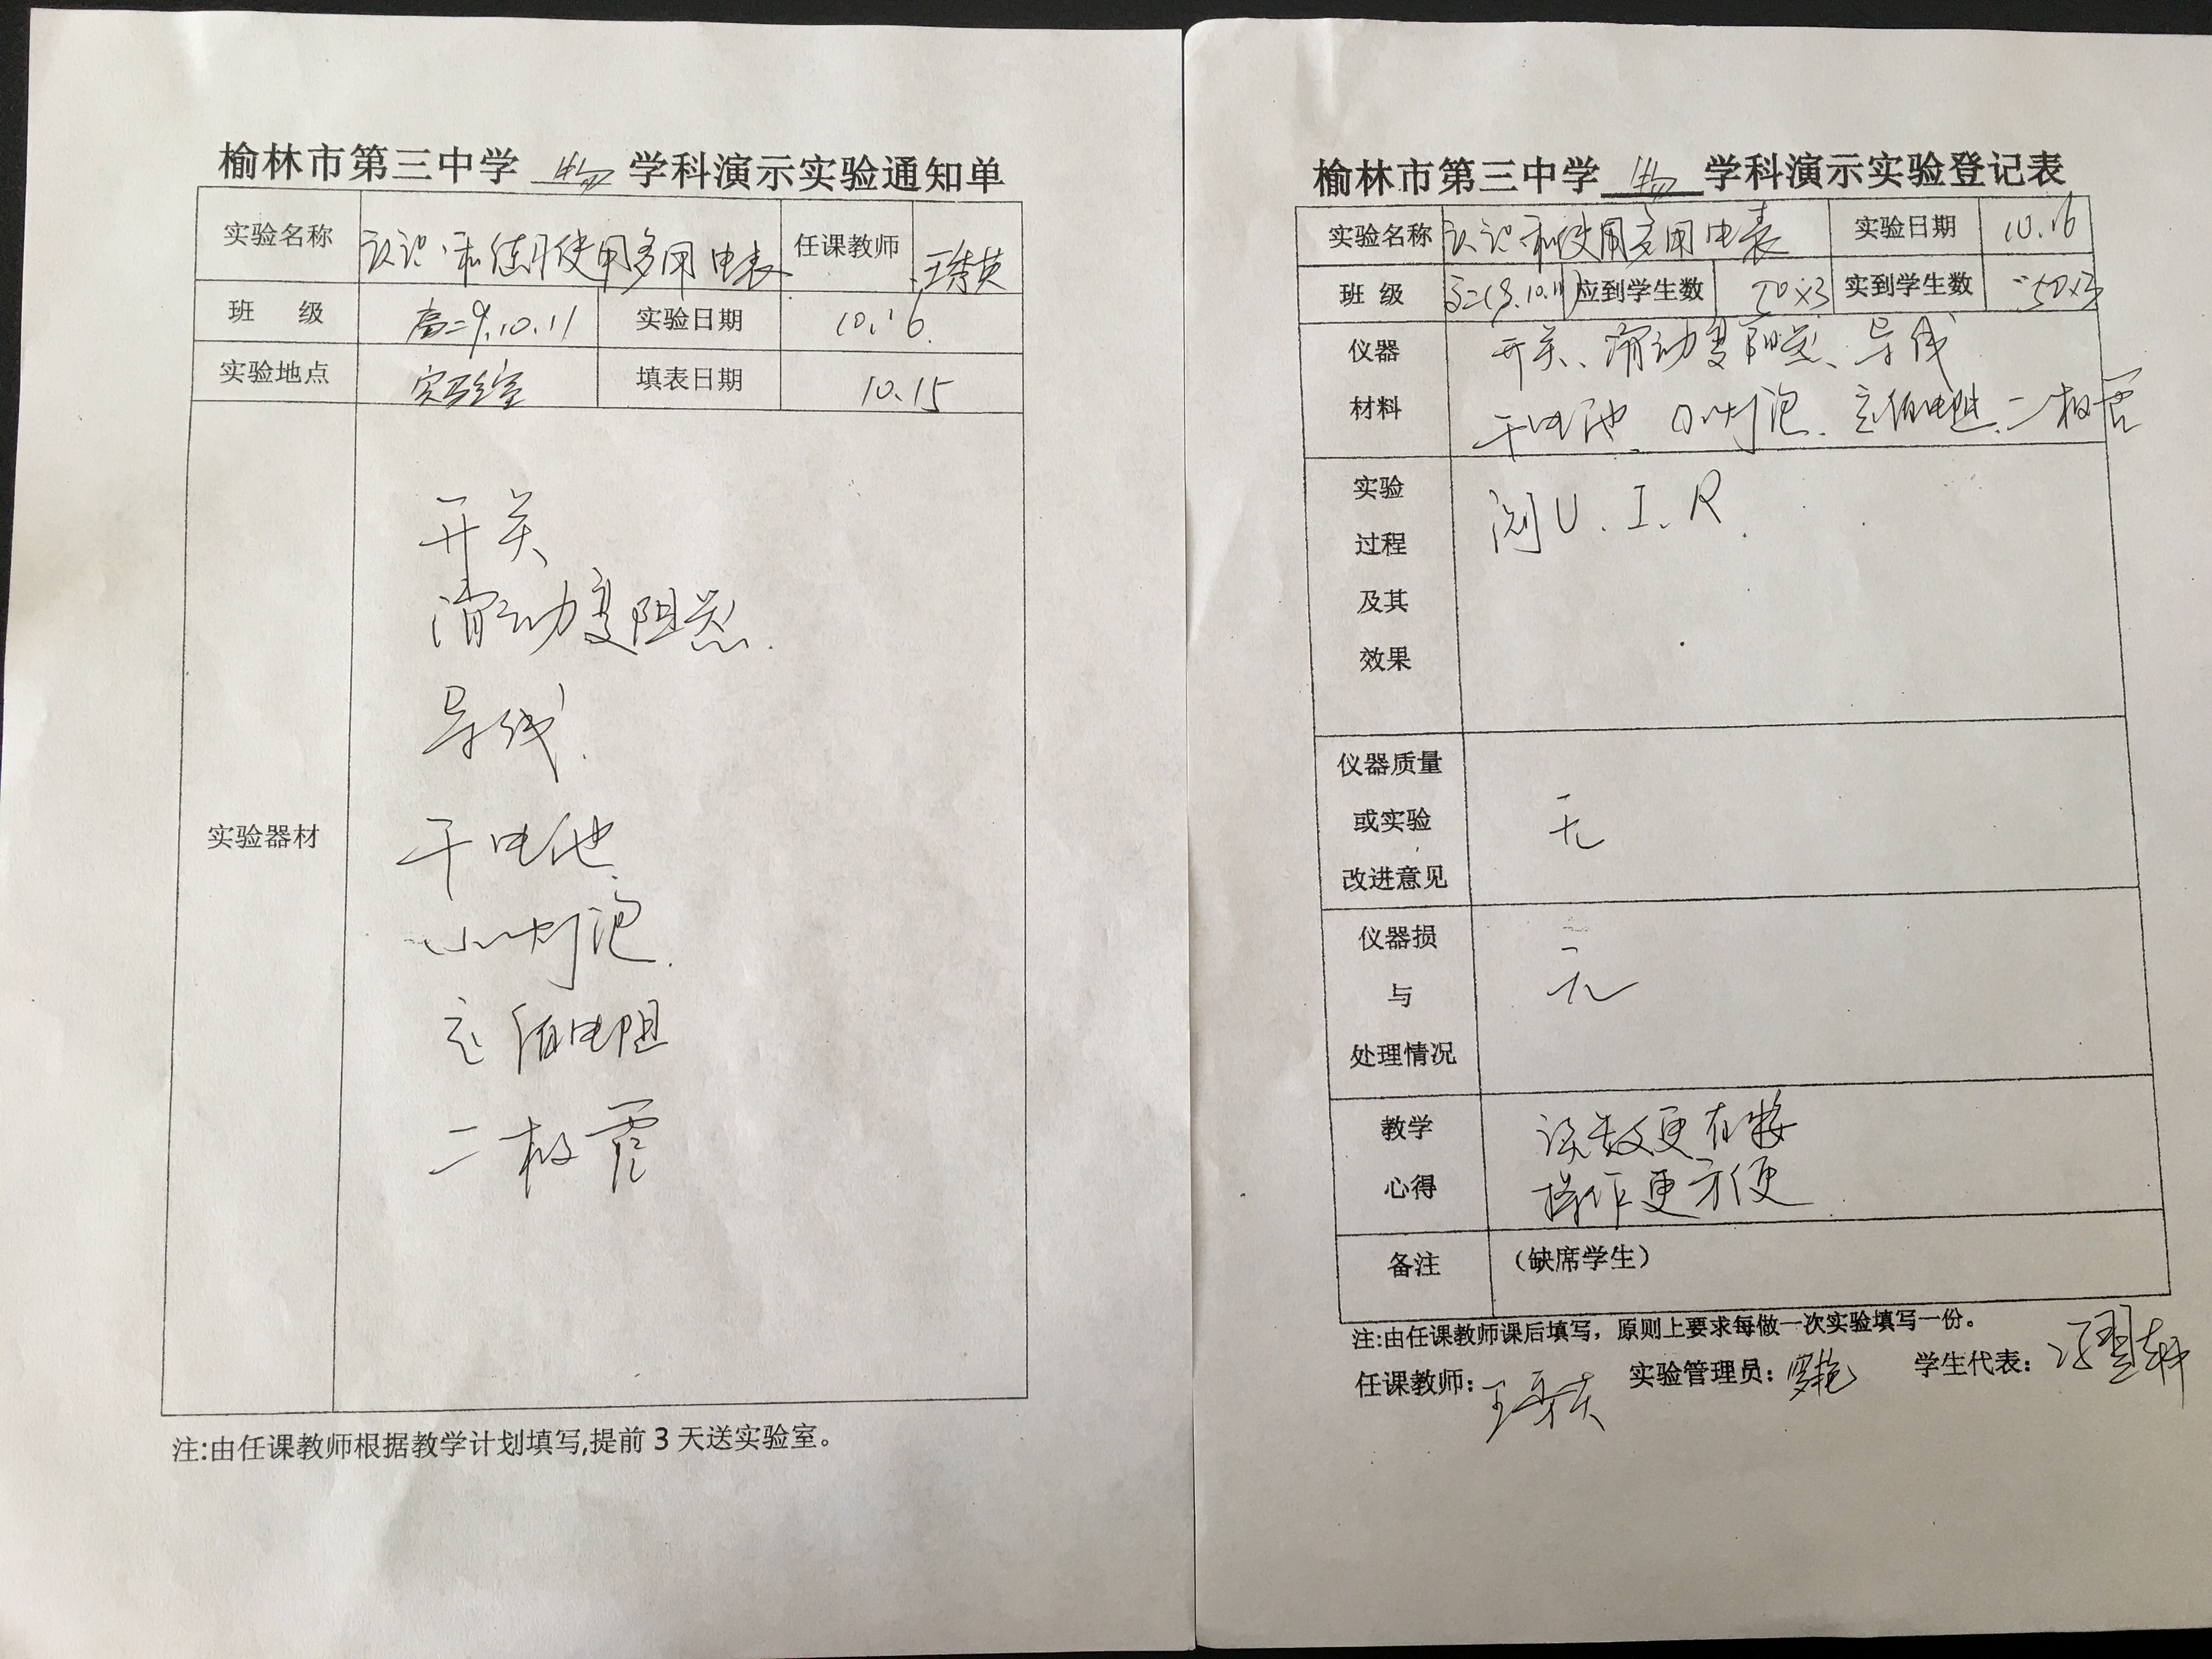 榆林市第三中学 物 学科演示实验通知单
实验名称 认识和使用多用电表 任课教师 王秀英
班 级 高二9.10.11 实验日期 10.16
实验地点 实验室 填表日期 10.15
实验器材
开关
滑动变阻器
导线
干电池
小灯泡
定值电阻
二极管
注:由任课教师根据教学计划填写,提前3天送实验室。
榆林市第三中学 物 学科演示实验登记表
实验名称 认识和使用多用电表 实验日期 10.16
班 级 高二(9.10.11) 应到学生数 50×3 实到学生数 50×3
仪器 开关、滑动变阻器、导线
材料 干电池、小灯泡、定值电阻、二极管
实验 测U、I、R
过程
及其
效果
仪器质量
或实验 无
改进意见
仪器损
与 无
处理情况
教学 读数更
心得 操作更方便
备注 (缺席学生)
注:由任课教师课后填写,原则上要求每做一次实验填写一份。
任课教师: 王秀英 实验管理员: 学生代表: